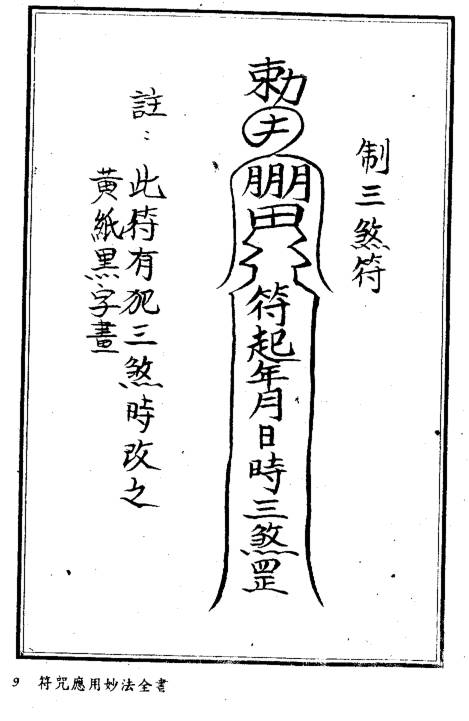 制三煞符
勅
田
符起年月日時三煞罡
註：此符有犯三煞時改之
黃紙黑字畫
9 符咒應用妙法全書